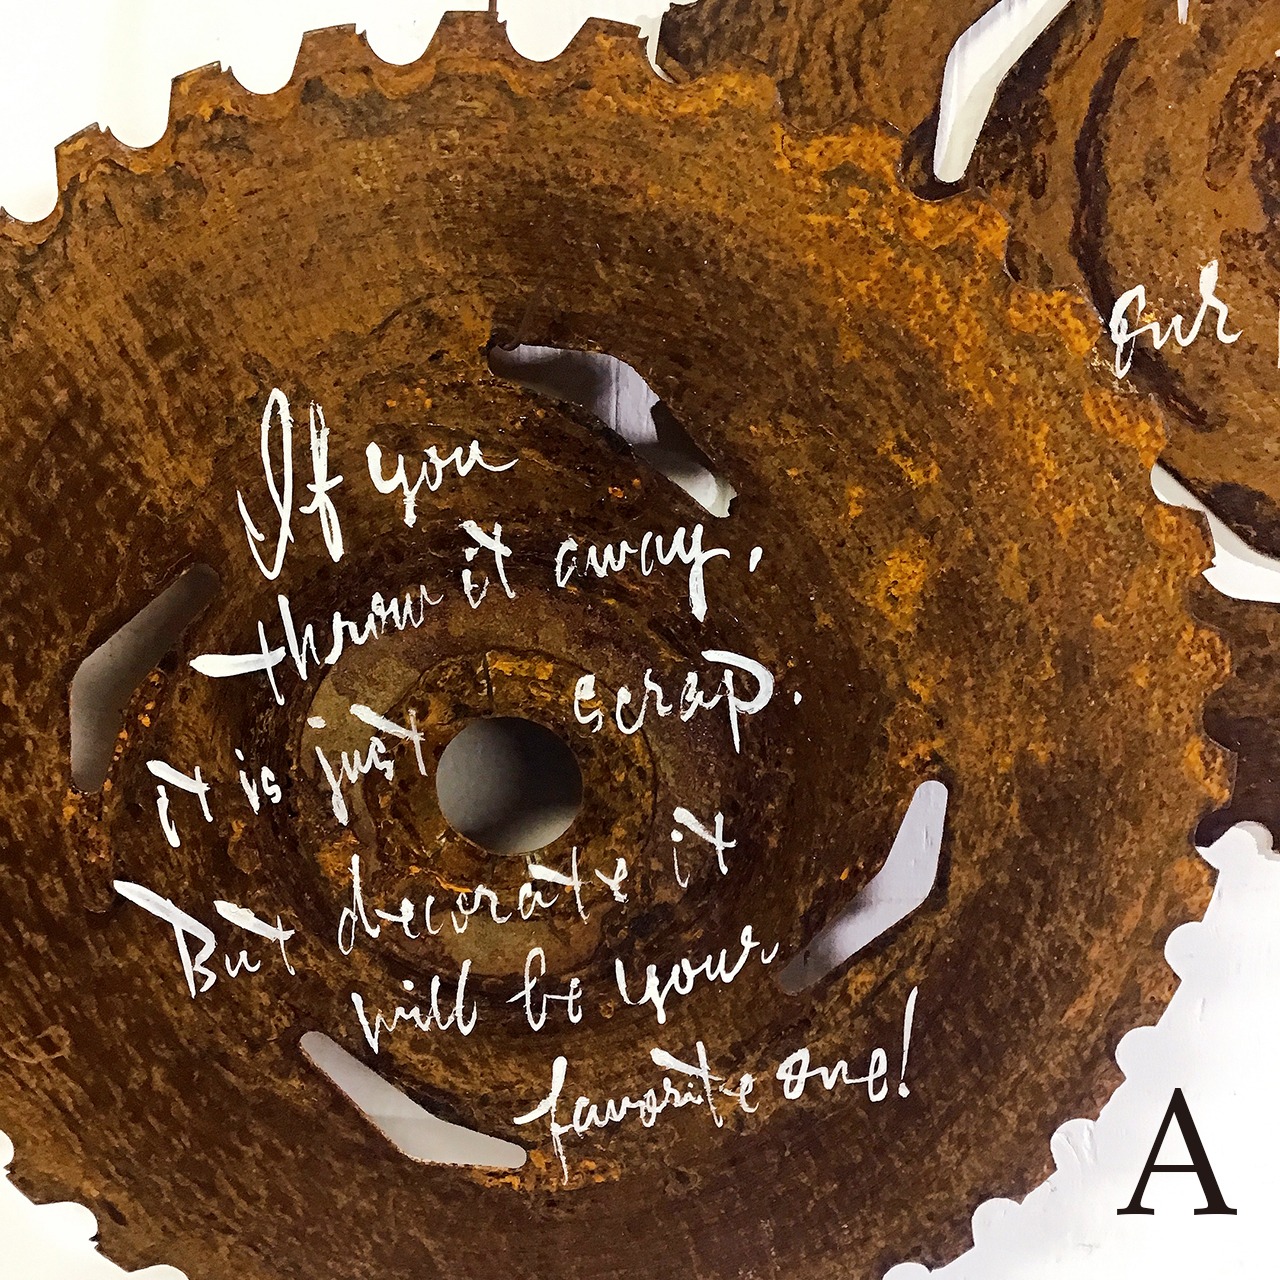 If you
throw it away,
it is just scrap.
But decorate it
will be your
favorite one!
our
A